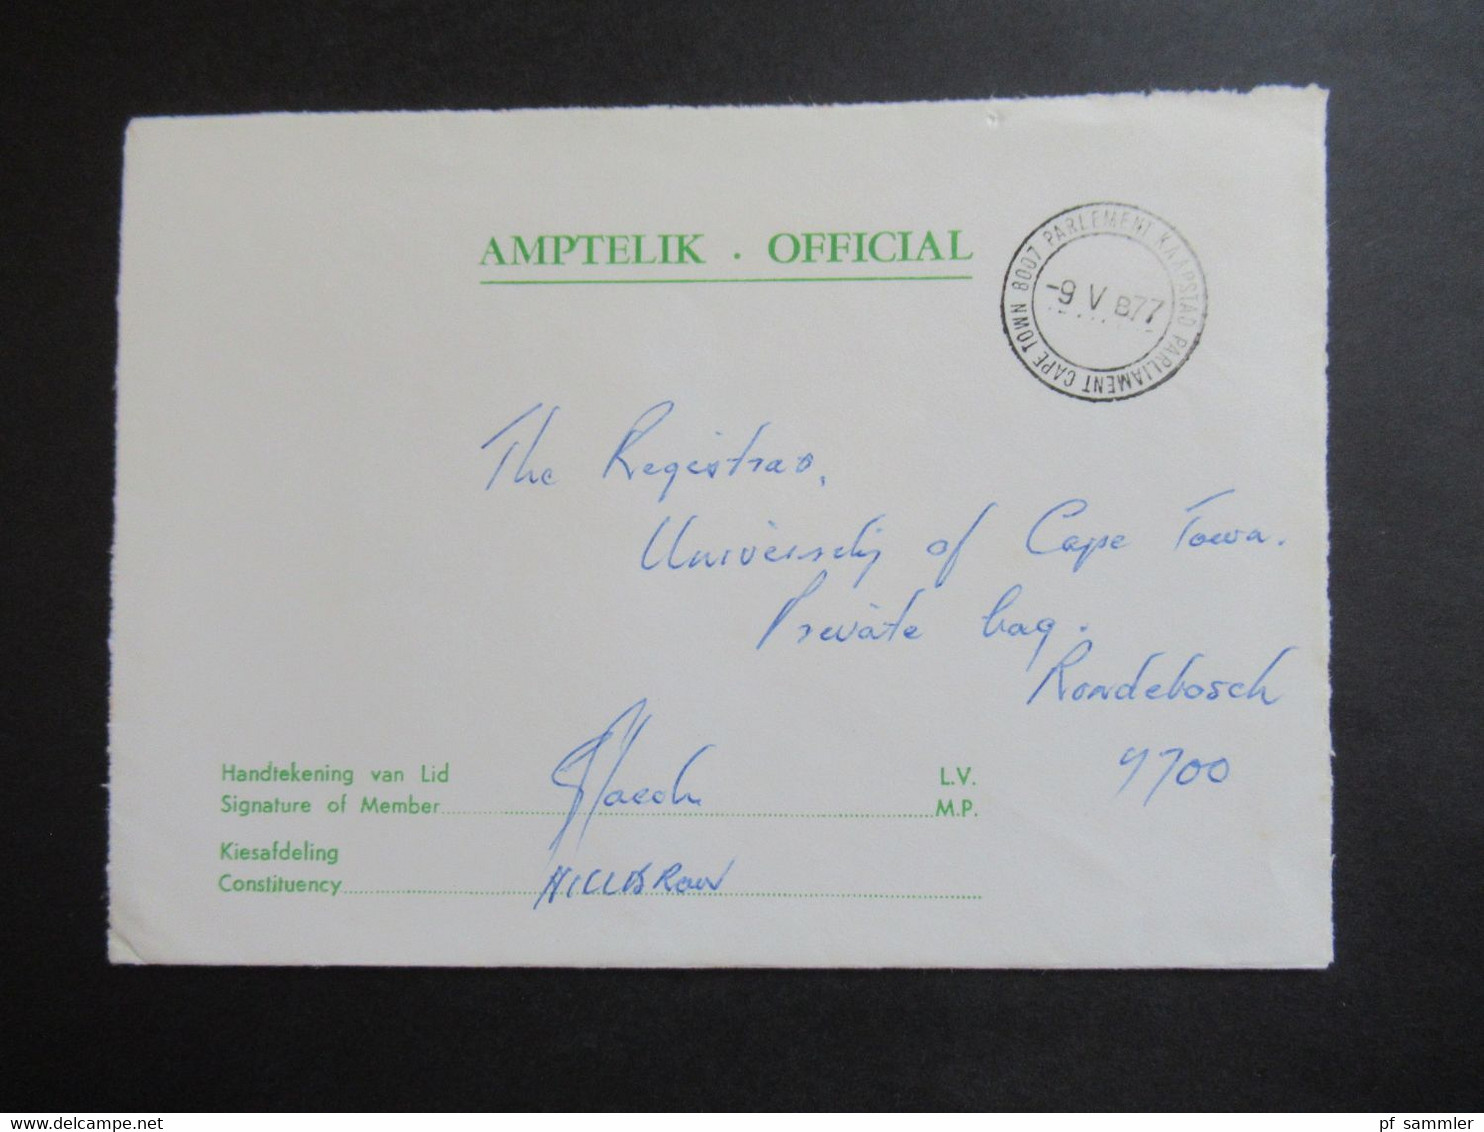 AMPTELIK . OFFICIAL
8007 PARLEMENT KAAPSTAD PARLIAMENT CAPE TOWN
-9 V B77
The Registrar,
University of Cape Town.
Private bag.
Rondebosch
7700
Handtekening van Lid L.V.
Signature of Member M.P.
Kiesafdeling
Constituency HILLBROW
www.delcampe.net
pf_sammler